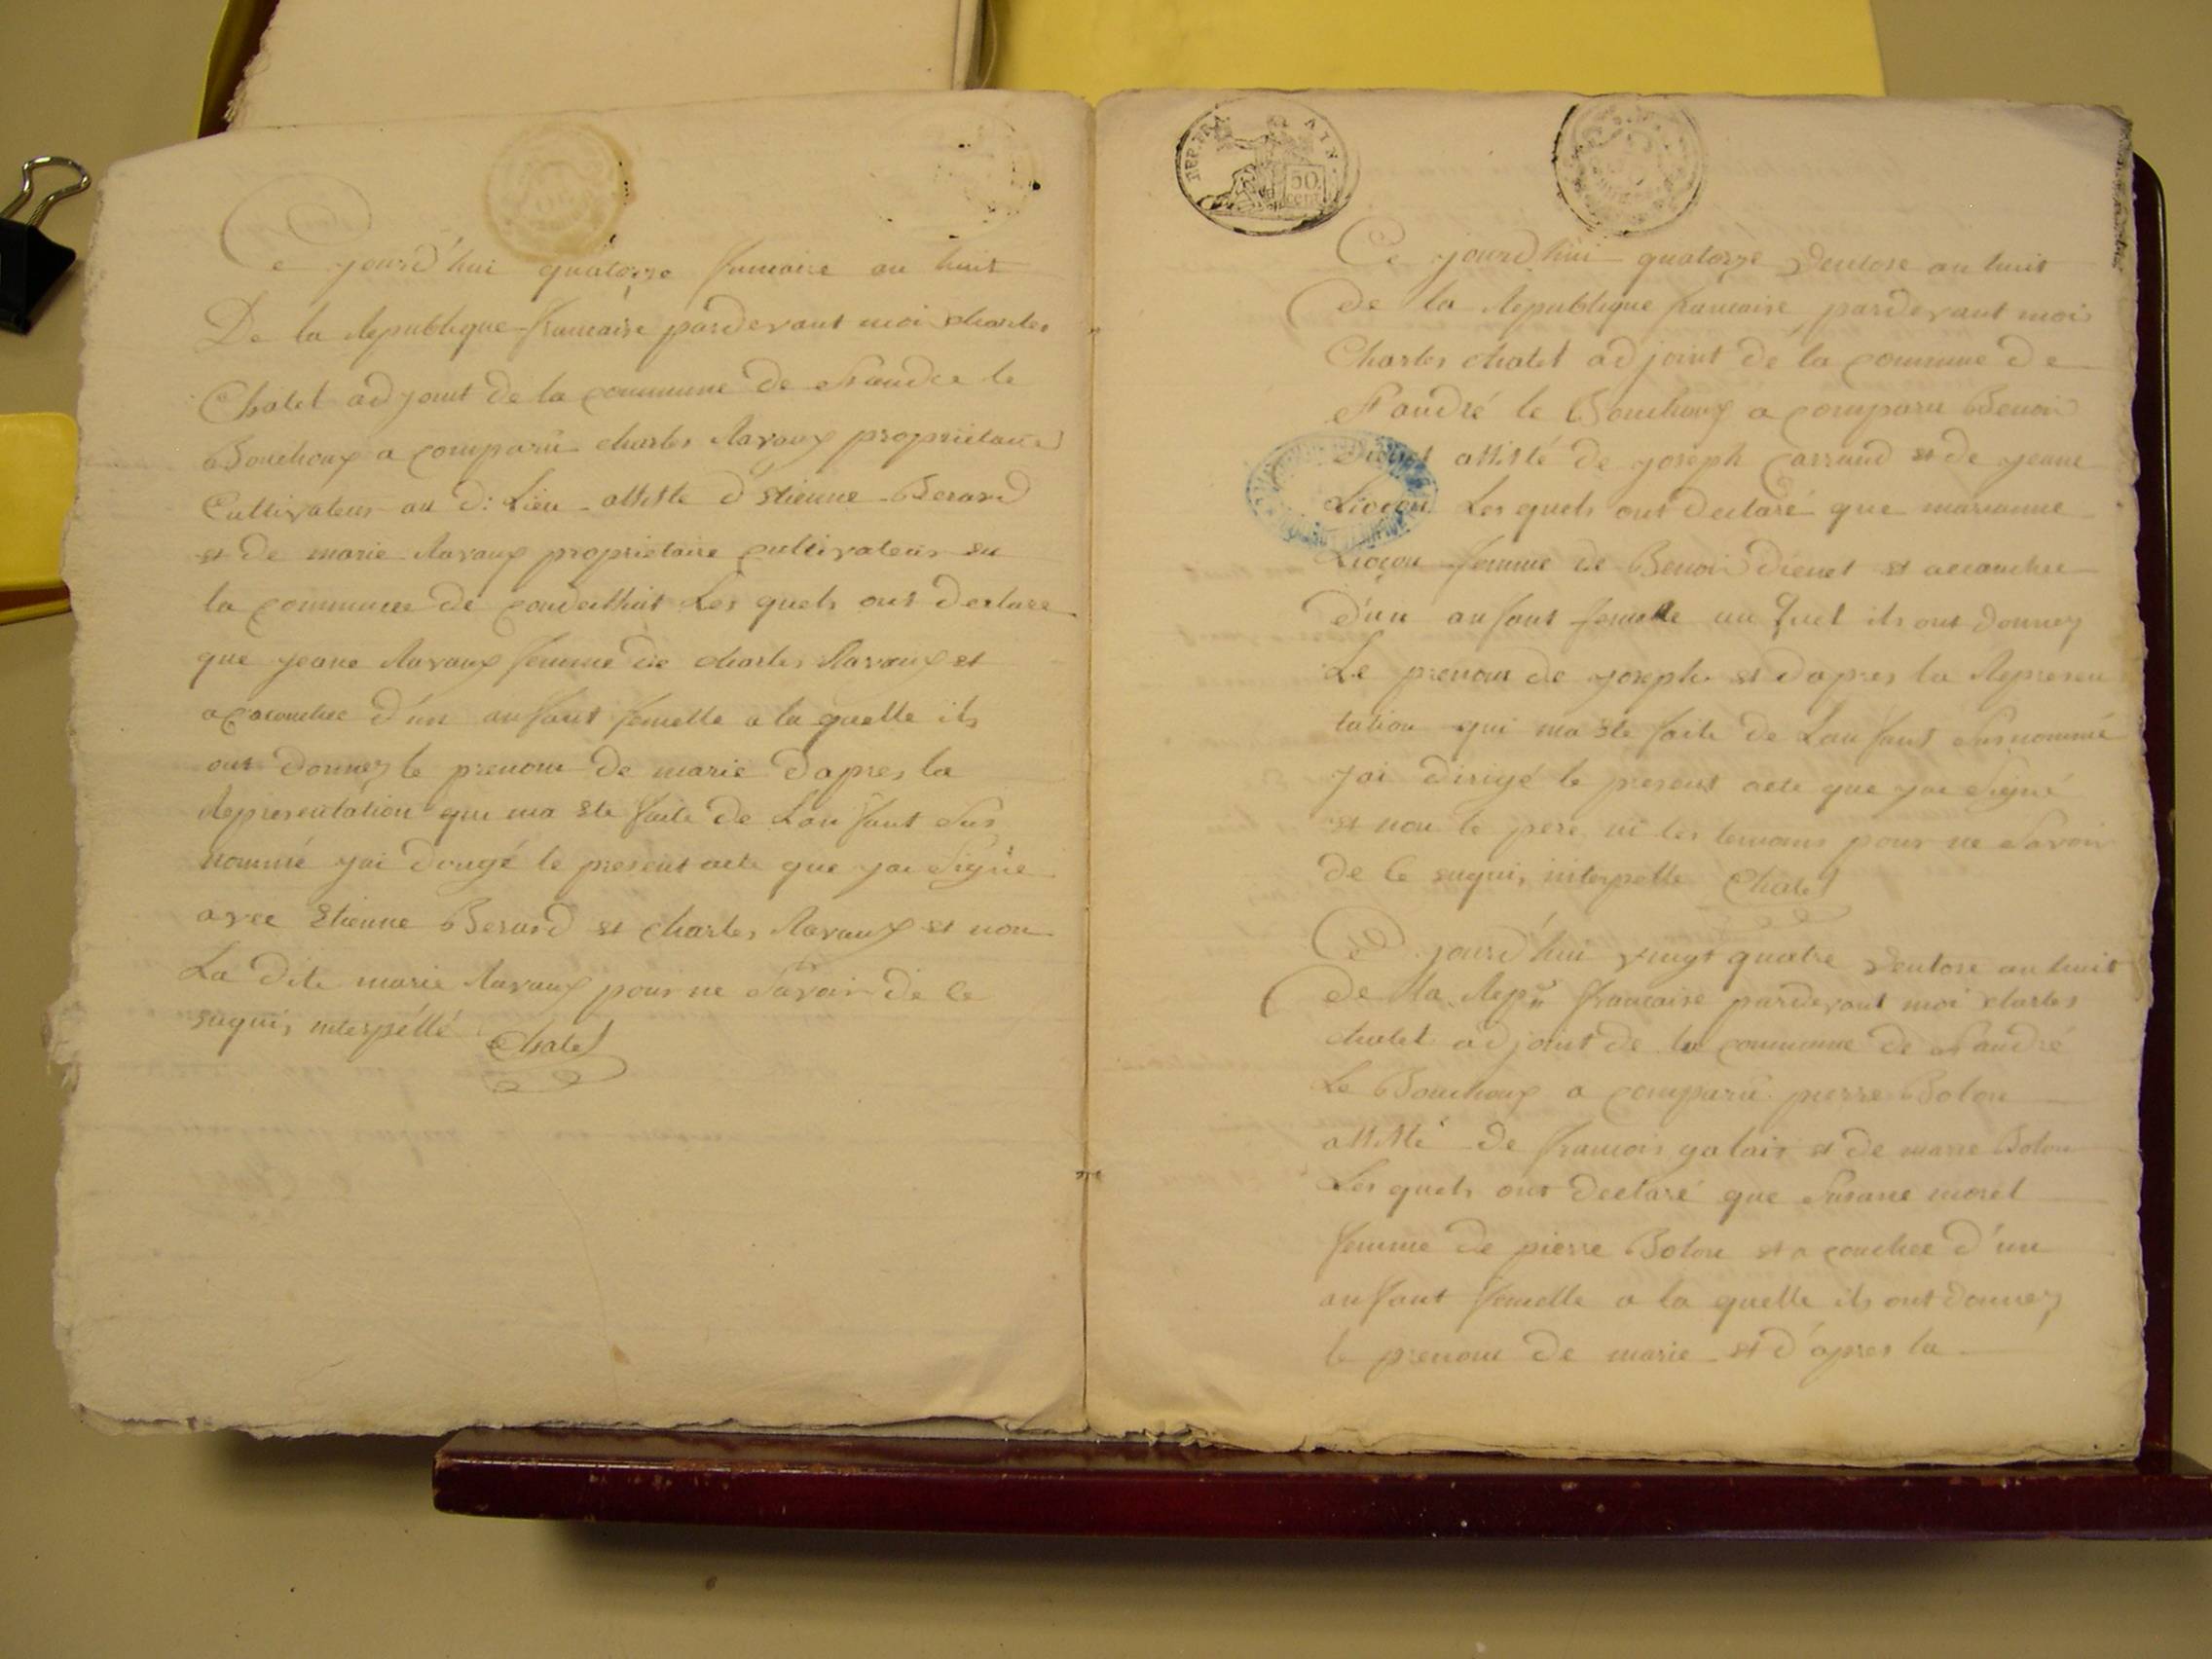 Ce jourd'hui quatorze frimaire an huit
De la Republique francaise pardevant moi charles
Chatel adjoint de la commune de St andre le
Bouchoux a comparu charles Ravoux proprietaire
Cultivateur au d: Lieu assisté d'Etienne Berard
et de marie Ravoux proprietaire cultivateur en
la commune de condeissiat Les quels ont declare
que jeane Ravoux femme de charles Ravoux et
acacouchee d'un anfant femelle a la quelle ils
ont donnez le prenom de marie d'apres la
Representation qui ma ete faite de Lanfant sus
nommé jai dirigé le present acte que jai signé
avec Etienne Berard et charles Ravoux et non
La dite marie Ravoux pour ne savoir de ce
enquis interpéllé Chatel
REP. FRA. AIN
50 cent
Ce jourd'hui quatorze ventose an huit
de la Republique francaise pardevant moi
Charles chatel adjoint de la commune de
St andré le Bouchoux a comparu Benoi
assisté de joseph Carraud et de jeane
Lioçon Les quels ont declaré que marianne
Lioçon femme de Benoi et acouchee
d'un anfant femelle au quel ils ont donnez
Le prenom de joseph et d'apres la Represen
tation qui ma ete faite de Lanfant susnommé
jai dirigé le present acte que jai signé
et non le pere ni les temoins pour ne savoir
de ce enquis interpelle Chatel
Ce jourd'hui vingt quatre ventose an huit
de la Rep francaise pardevant moi charles
chatel adjoint de la commune de St andré
Le Bouchoux a comparu pierre Bolon
assisté de francois et de marie Bolon
Les quels ont declaré que Susane morel
femme de pierre Bolon et a couchee d'un
anfant femelle a la quelle ils ont donnez
le prenom de marie et d'apres la